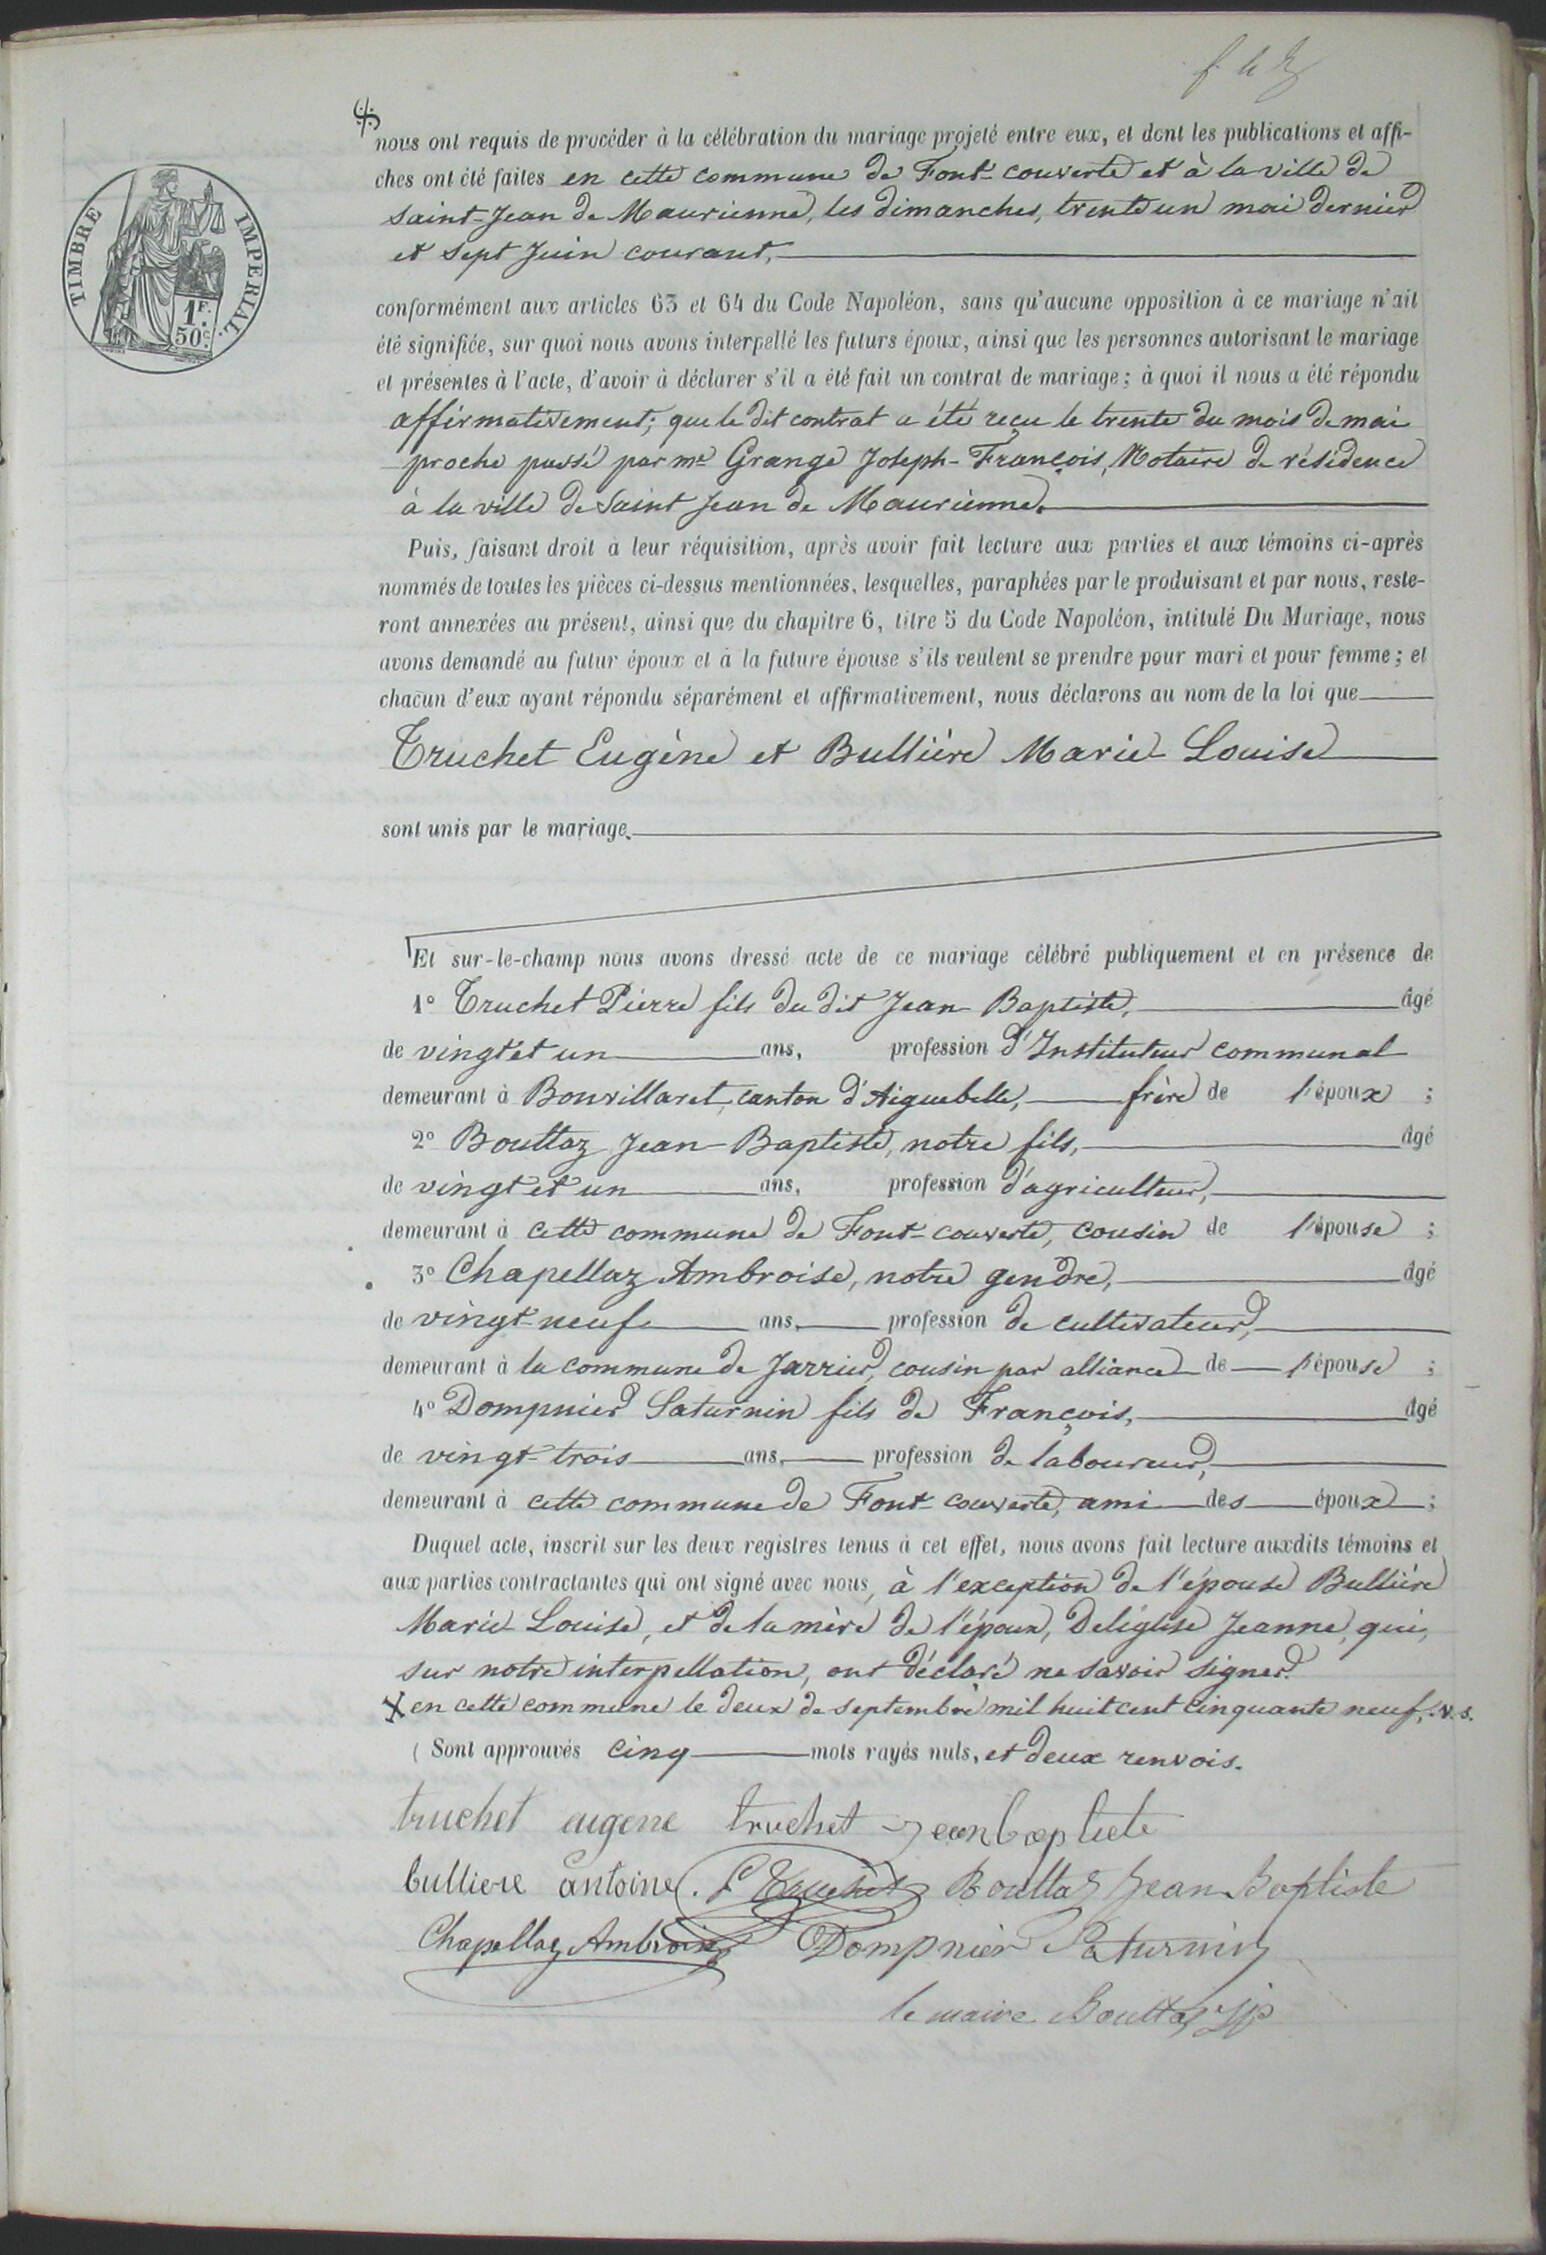 TIMBRE IMPERIAL.
1F.
50c.
nous ont requis de procéder à la célébration du mariage projeté entre eux, et dont les publications et affi-
ches ont été faites en cette commune de Font-couverte et à la ville de
saint-Jean de Maurienne, les dimanches, trente un mai dernier
et sept Juin courant,
conformément aux articles 63 et 64 du Code Napoléon, sans qu'aucune opposition à ce mariage n'ait
été signifiée, sur quoi nous avons interpellé les futurs époux, ainsi que les personnes autorisant le mariage
et présentes à l'acte, d'avoir à déclarer s'il a été fait un contrat de mariage; à quoi il nous a été répondu
affirmativement; que le dit contrat a été reçu le trente du mois de mai
proche passé par me Grange Joseph-François, Notaire de résidence
à la ville de Saint Jean de Maurienne.
Puis, faisant droit à leur réquisition, après avoir fait lecture aux parties et aux témoins ci-après
nommés de toutes les pièces ci-dessus mentionnées, lesquelles, paraphées par le produisant et par nous, reste-
ront annexées au présent, ainsi que du chapitre 6, titre 5 du Code Napoléon, intitulé Du Mariage, nous
avons demandé au futur époux et à la future épouse s'ils veulent se prendre pour mari et pour femme; et
chacun d'eux ayant répondu séparément et affirmativement, nous déclarons au nom de la loi que
Truchet Eugène et Bullière Marie-Louise
sont unis par le mariage.
Et sur-le-champ nous avons dressé acte de ce mariage célébré publiquement et en présence de
1° Truchet Pierre fils du dit Jean-Baptiste, âgé
de vingt et un ans, profession d'Instituteur communal
demeurant à Bonvillaret, canton d'Aiguebelle, frère de l'époux ;
2° Bouttaz Jean-Baptiste, notre fils, âgé
de vingt et un ans, profession d'agriculteur,
demeurant à cette commune de Font-couverte, cousin de l'épouse ;
3° Chapellaz Ambroise, notre gendre, âgé
de vingt-neuf ans, profession de cultivateur,
demeurant à la commune de Jarrier, cousin par alliance de l'épouse ;
4° Dompnier Saturnin fils de François, âgé
de vingt-trois ans, profession de laboureur,
demeurant à cette commune de Font-couverte, ami des époux ;
Duquel acte, inscrit sur les deux registres tenus à cet effet, nous avons fait lecture auxdits témoins et
aux parties contractantes qui ont signé avec nous, à l'exception de l'épouse Bullière
Marie-Louise, et de la mère de l'époux, Deléglise Jeanne, qui,
sur notre interpellation, ont déclaré ne savoir signer.
en cette commune le deux de septembre mil huit cent cinquante neuf, . v. s.
( Sont approuvés cinq mots rayés nuls, et deux renvois.
truchet eugene truchet jean baptiste
bulliere antoine. P Truchet Bouttaz Jean Baptiste
Chapellaz Ambroise Dompnier Saturnin
le maire Bouttaz